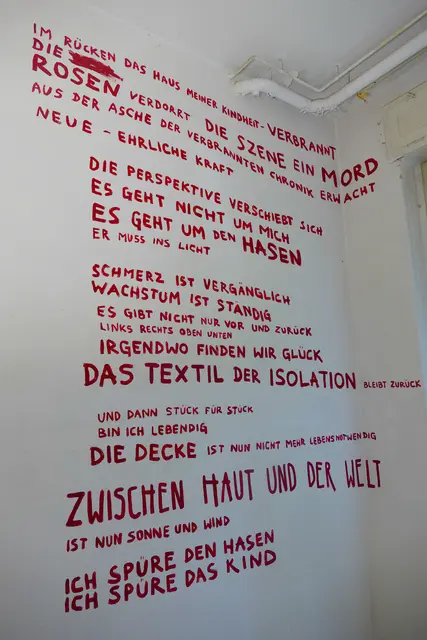 IM RÜCKEN DAS HAUS MEINER KINDHEIT - VERBRANNT
DIE
ROSEN VERDORRT DIE SZENE EIN MORD
AUS DER ASCHE DER VERBRANNTEN CHRONIK ERWACHT
NEUE - EHRLICHE KRAFT
DIE PERSPEKTIVE VERSCHIEBT SICH
ES GEHT NICHT UM MICH
ES GEHT UM DEN HASEN
ER MUSS INS LICHT
SCHMERZ IST VERGÄNGLICH
WACHSTUM IST STÄNDIG
ES GIBT NICHT NUR VOR UND ZURÜCK
LINKS RECHTS OBEN UNTEN
IRGENDWO FINDEN WIR GLÜCK
DAS TEXTIL DER ISOLATION BLEIBT ZURÜCK
UND DANN STÜCK FÜR STÜCK
BIN ICH LEBENDIG
DIE DECKE IST NUN NICHT MEHR LEBENSNOTWENDIG
ZWISCHEN HAUT UND DER WELT
IST NUN SONNE UND WIND
ICH SPÜRE DEN HASEN
ICH SPÜRE DAS KIND